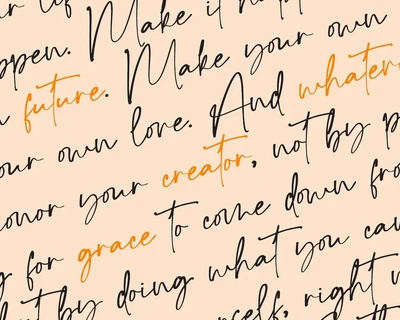 Make it
ppen. Make your own
future. Make your own
our own love. And whatever
onor your creator, not by
for grace to come down fro
but by doing what you can
self, right